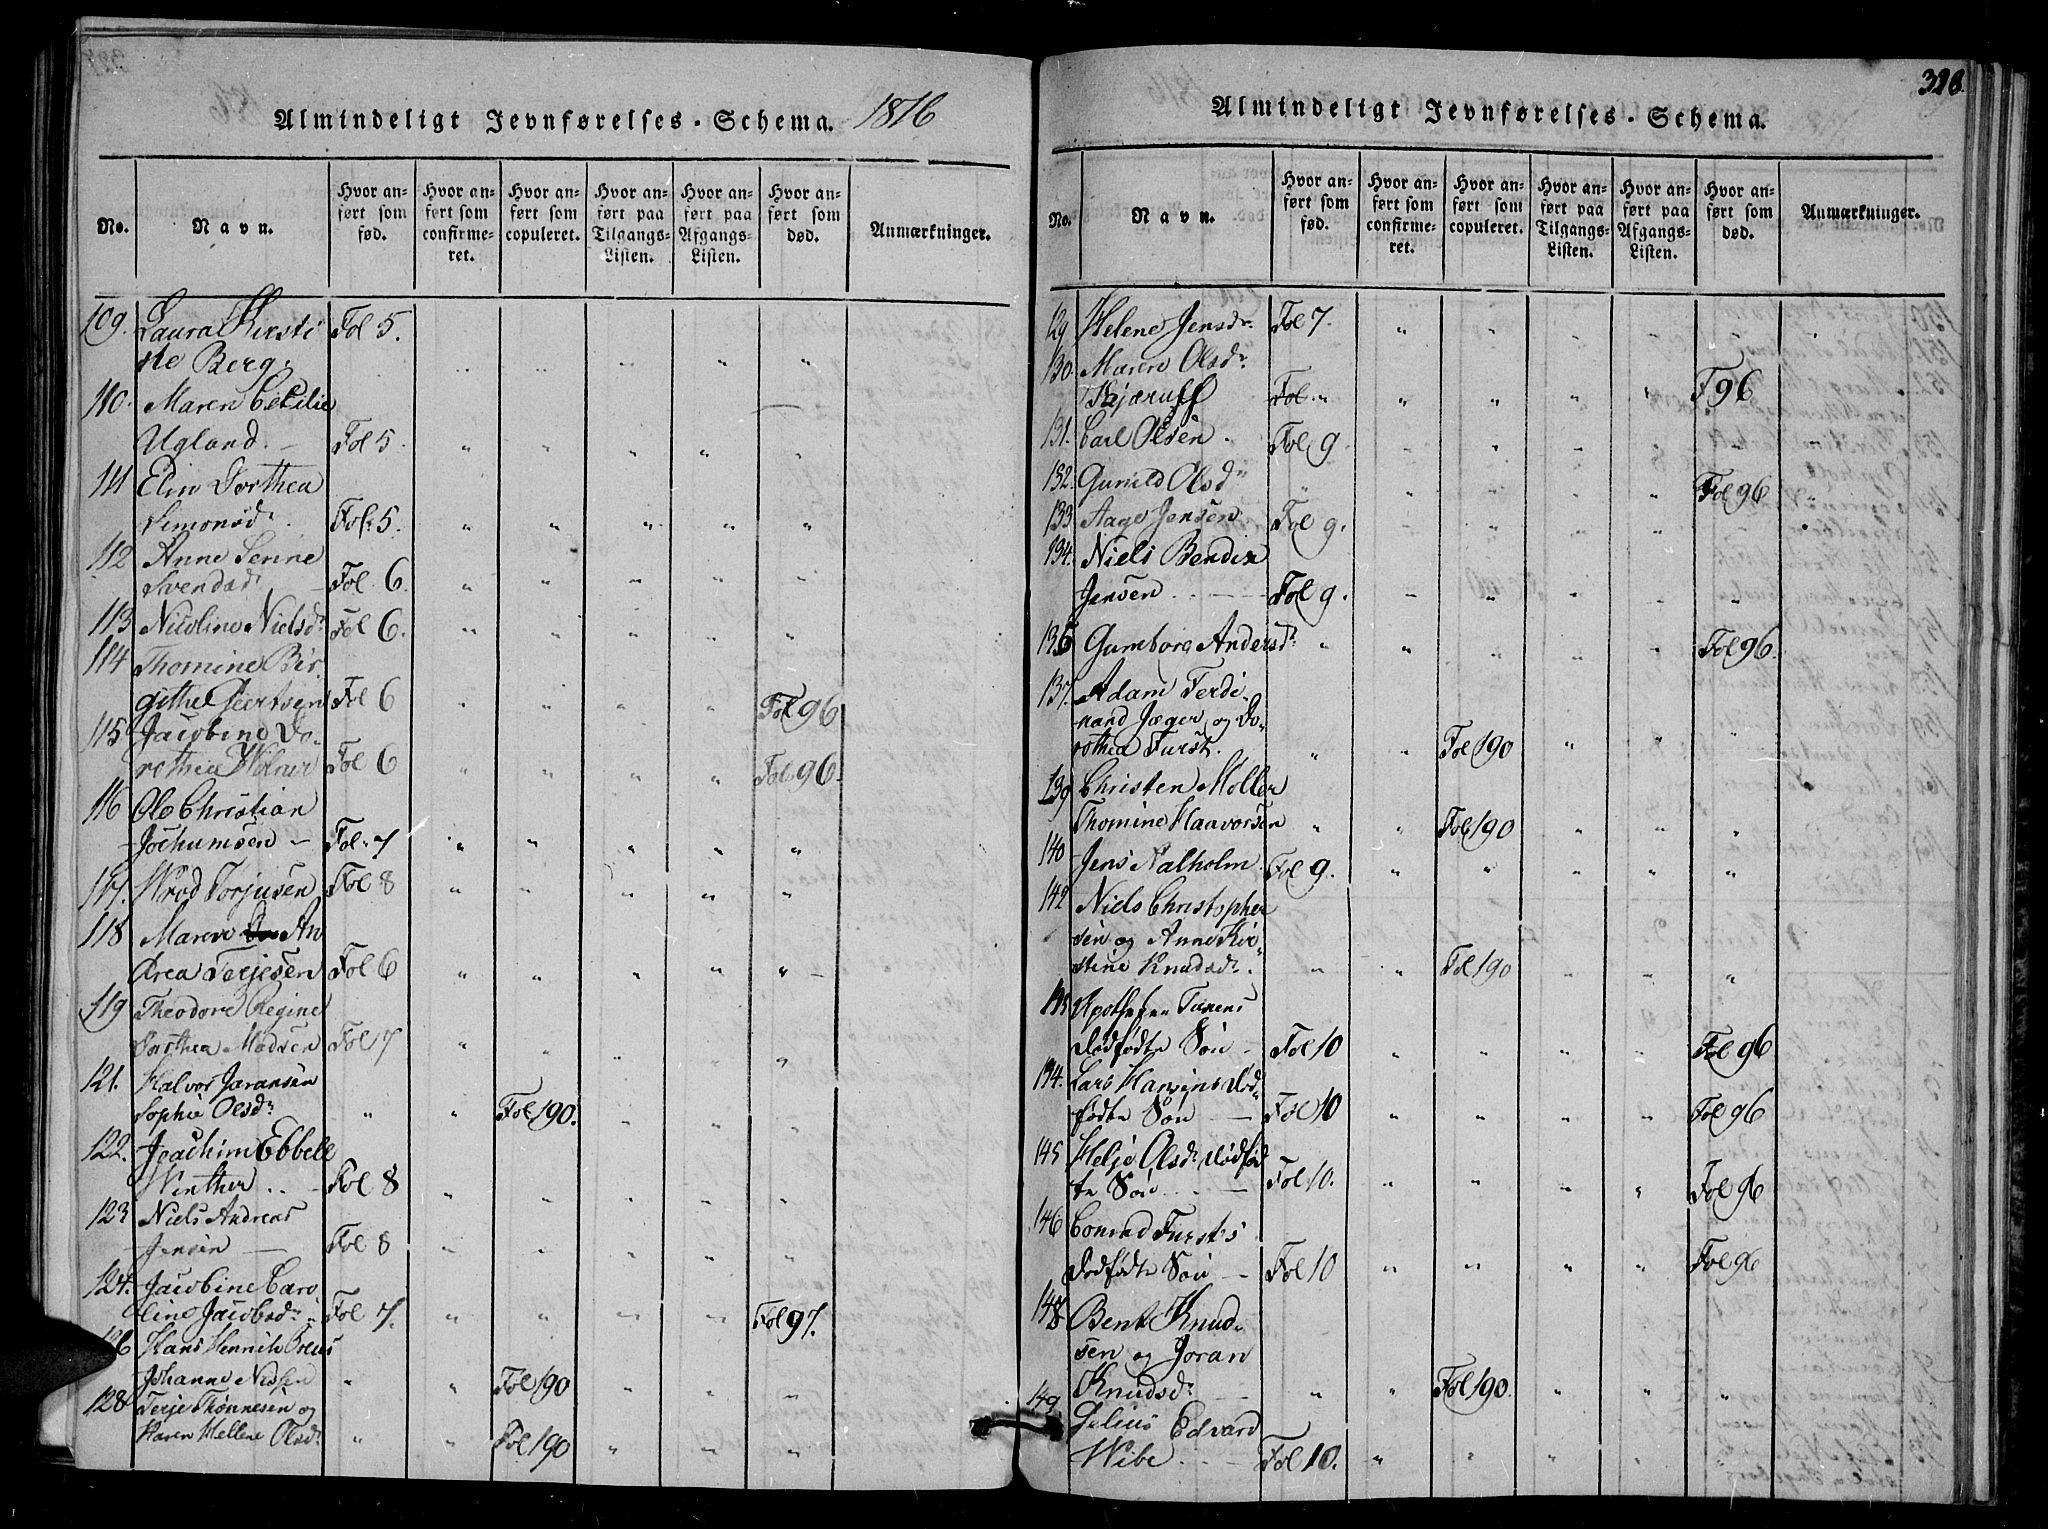 Almindeligt Jevnførelses-Schema. 1816
No. Navn. Hvor anført som fød. Hvor anført som confirmeret. Hvor anført som copuleret. Hvor anført paa Tilgangs-Listen. Hvor anført paa Afgangs-Listen. Hvor anført som død. Anmærkninger.
109. Laura Kirsti
ste Berg. Fol 5.
110. Maren Cecilie
Ugland. Fol 5.
111 Elin Dorthea
Simonsdr. Fol. 5.
112 Anne Serine
Svendsdr Fol. 6.
113 Nicoline Nielsdr Fol 6.
114 Thomine Bir-
githe Geertsen Fol 6 Fol 96
115 Jacobine Do-
rothea Fol 6 Fol 96.
116 Ole Christian
Jochumsen Fol. 7
117. Torjusen Fol 8
118 Maren An
drea Terjesen Fol 6
119 Theodore Regine
Dorthea Madsen Fol 7
121. Halvor Jaransen
Sophie Olsdr " " Fol 190.
122. Joachim Ebbell
Winther Fol 8
123 Niels Andreas
Jensen Fol 8
124. Jacobine Caro
line Jacobsdr Fol 7. Fol 97.
126 Hans Henrich
Johanne Nielsen " " Fol 190
128 Terje Thønnesen og
Karen Hellene Olsdr " " Fol 190
328.
Almindeligt Jevnførelses-Schema.
No. Navn. Hvor anført som fød. Hvor anført som confirmeret. Hvor anført som copuleret. Hvor anført paa Tilgangs-Listen. Hvor anført paa Afgangs-Listen. Hvor anført som død. Anmærkninger.
129 Helene Jensdr. Fol 7.
130. Maren Olsdr
Kjærulff Fol. " F 96
131. Carl Olsen. Fol 9
132. Gunild Olsdr Fol 96
133 Aage Jensen Fol 9.
134. Niels Bendix
Jensen Fol 9.
136 Gumborg Andersdr " Fol 96.
137. Adam Ferdi-
nand Jæger og Do-
rothea Furst. " " Fol 190
139 Christen Møller
Thomine Haavorsen " " Fol 190
140 Jens Nalholm Fol 9.
142 Niels Christopher
sen og Anne Kir
stine Knudsdr. " " Fol 190
Dødfødte Søn Fol 10 Fol 96
144. Lars Hansens Død-
fødte Søn Fol 10 Fol 96
145 Helje Olsdr Dødfød
te Søn Fol 10. Fol 96
146 Conrad Fursts
Dødfødte Søn Fol 10 Fol 96
148 Bent Knud-
sen og Joran
Knudsdr " " Fol 190.
149 Julius Edvard
Wibe Fol 10.